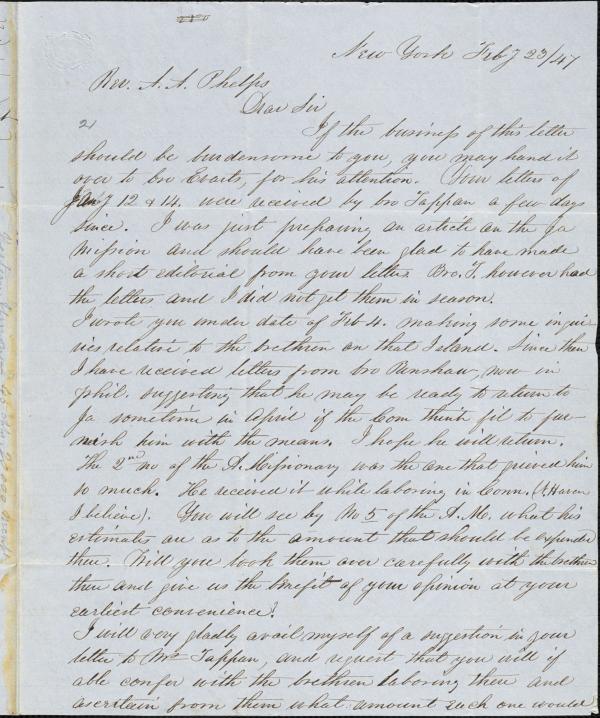 New York Feby 23/47
Rev. A. A. Phelps
Dear Sir
21
If the business of this letter
should be burdensome to you, you may hand it
over to bro Evarts, for his attention. Your letters of
Jany 12 & 14. were received by bro Tappan a few days
since. I was just preparing an article on the Ja
Mission and should have been glad to have made
a short editorial from your letters. Bro. T. however had
the letters and I did not get them in season.
I wrote you under date of Feb 4. making some inqui-
ries relative to the brethren on that Island. Since then
I have received letters from bro Renshaw, now in
Phil. suggesting that he may be ready to return to
Ja sometime in April if the Com think fit to fur-
nish him with the means. I hope he will return.
The 2nd no of the A. Missionary was the one that grieved him
so much. He received it while laboring in Conn. (N. Haven
I believe). You will see by No 5 of the A.M. what his
estimates are as to the amount that should be expended
there. Will you look them over carefully with the brethren
there and give us the benefit of your opinion at your
earliest convenience?
I will very gladly avail myself of a suggestion in your
letter to Mr Tappan, and request that you will if
able confer with the brethren laboring there and
ascertain from them what amount each one would